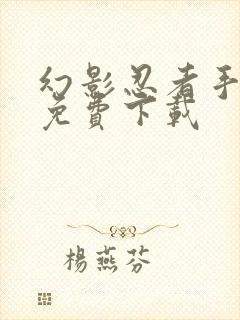 幻影忍者手
免費下載
楊燕芬